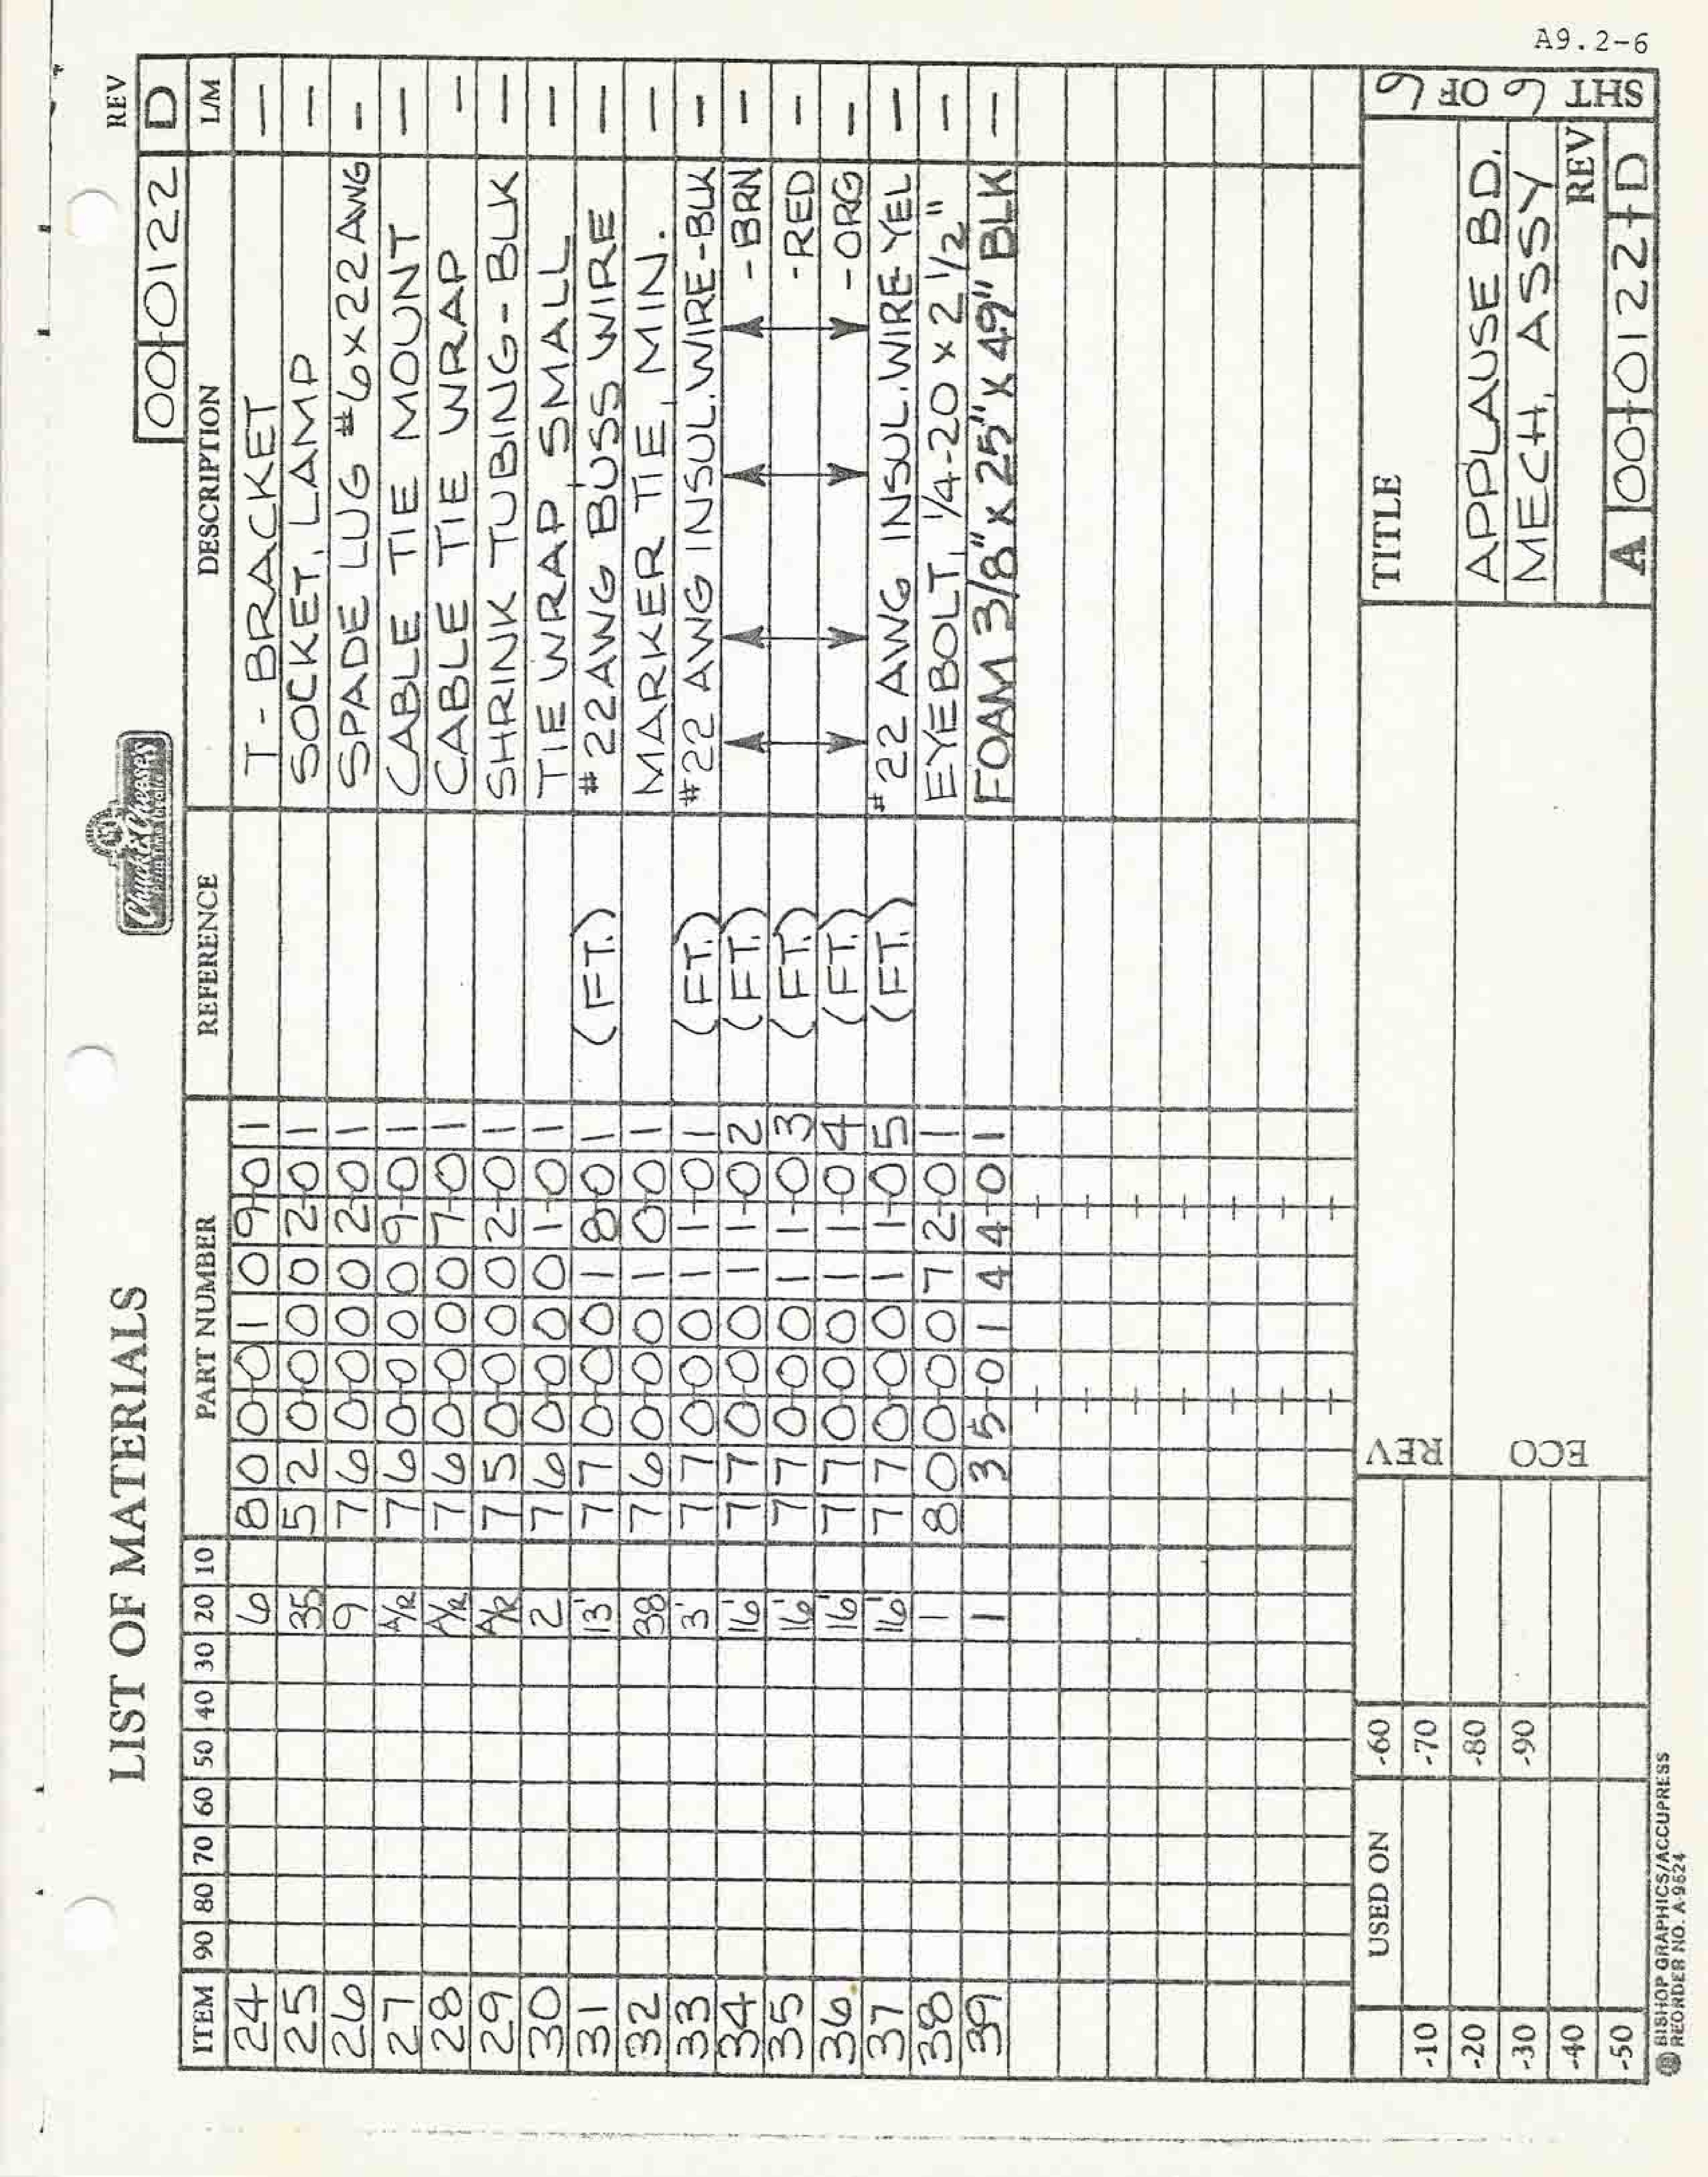 A9.2-6
LIST OF MATERIALS
Chuck E Cheese's
PIZZA TIME THEATRE
REV
00-0122 D
ITEM 90 80 70 60 50 40 30 20 10 PART NUMBER REFERENCE DESCRIPTION L/M
24 6 800-0109-01 T-BRACKET —
25 35 520-0002-01 SOCKET, LAMP —
26 9 760-0002-01 SPADE LUG #6X22AWG —
27 A/R 760-0009-01 CABLE TIE MOUNT —
28 A/R 760-0007-01 CABLE TIE WRAP —
29 A/R 750-0002-01 SHRINK TUBING-BLK —
30 2 760-0001-01 TIE WRAP, SMALL —
31 13' 770-0018-01 (FT.) #22AWG BUSS WIRE —
32 38 760-0010-01 MARKER TIE, MIN. —
33 3' 770-0011-01 (FT.) #22 AWG INSUL.WIRE-BLK —
34 16' 770-0011-02 (FT.) -BRN —
35 16' 770-0011-03 (FT.) -RED —
36 16' 770-0011-04 (FT.) -ORG —
37 16' 770-0011-05 (FT.) #22 AWG INSUL.WIRE-YEL —
38 1 800-0072-01 EYEBOLT, 1/4-20 x 2 1/2" —
39 1 35-0144-01 FOAM 3/8" x 25" x 49" BLK —
USED ON
-10
-20
-30
-40
-50
-60
-70
-80
-90
REV
ECO
TITLE
APPLAUSE BD.
MECH. ASSY
REV
A 00-0122-D
SHT 6 OF 6
BISHOP GRAPHICS/ACCUPRESS
REORDER NO. A-9524